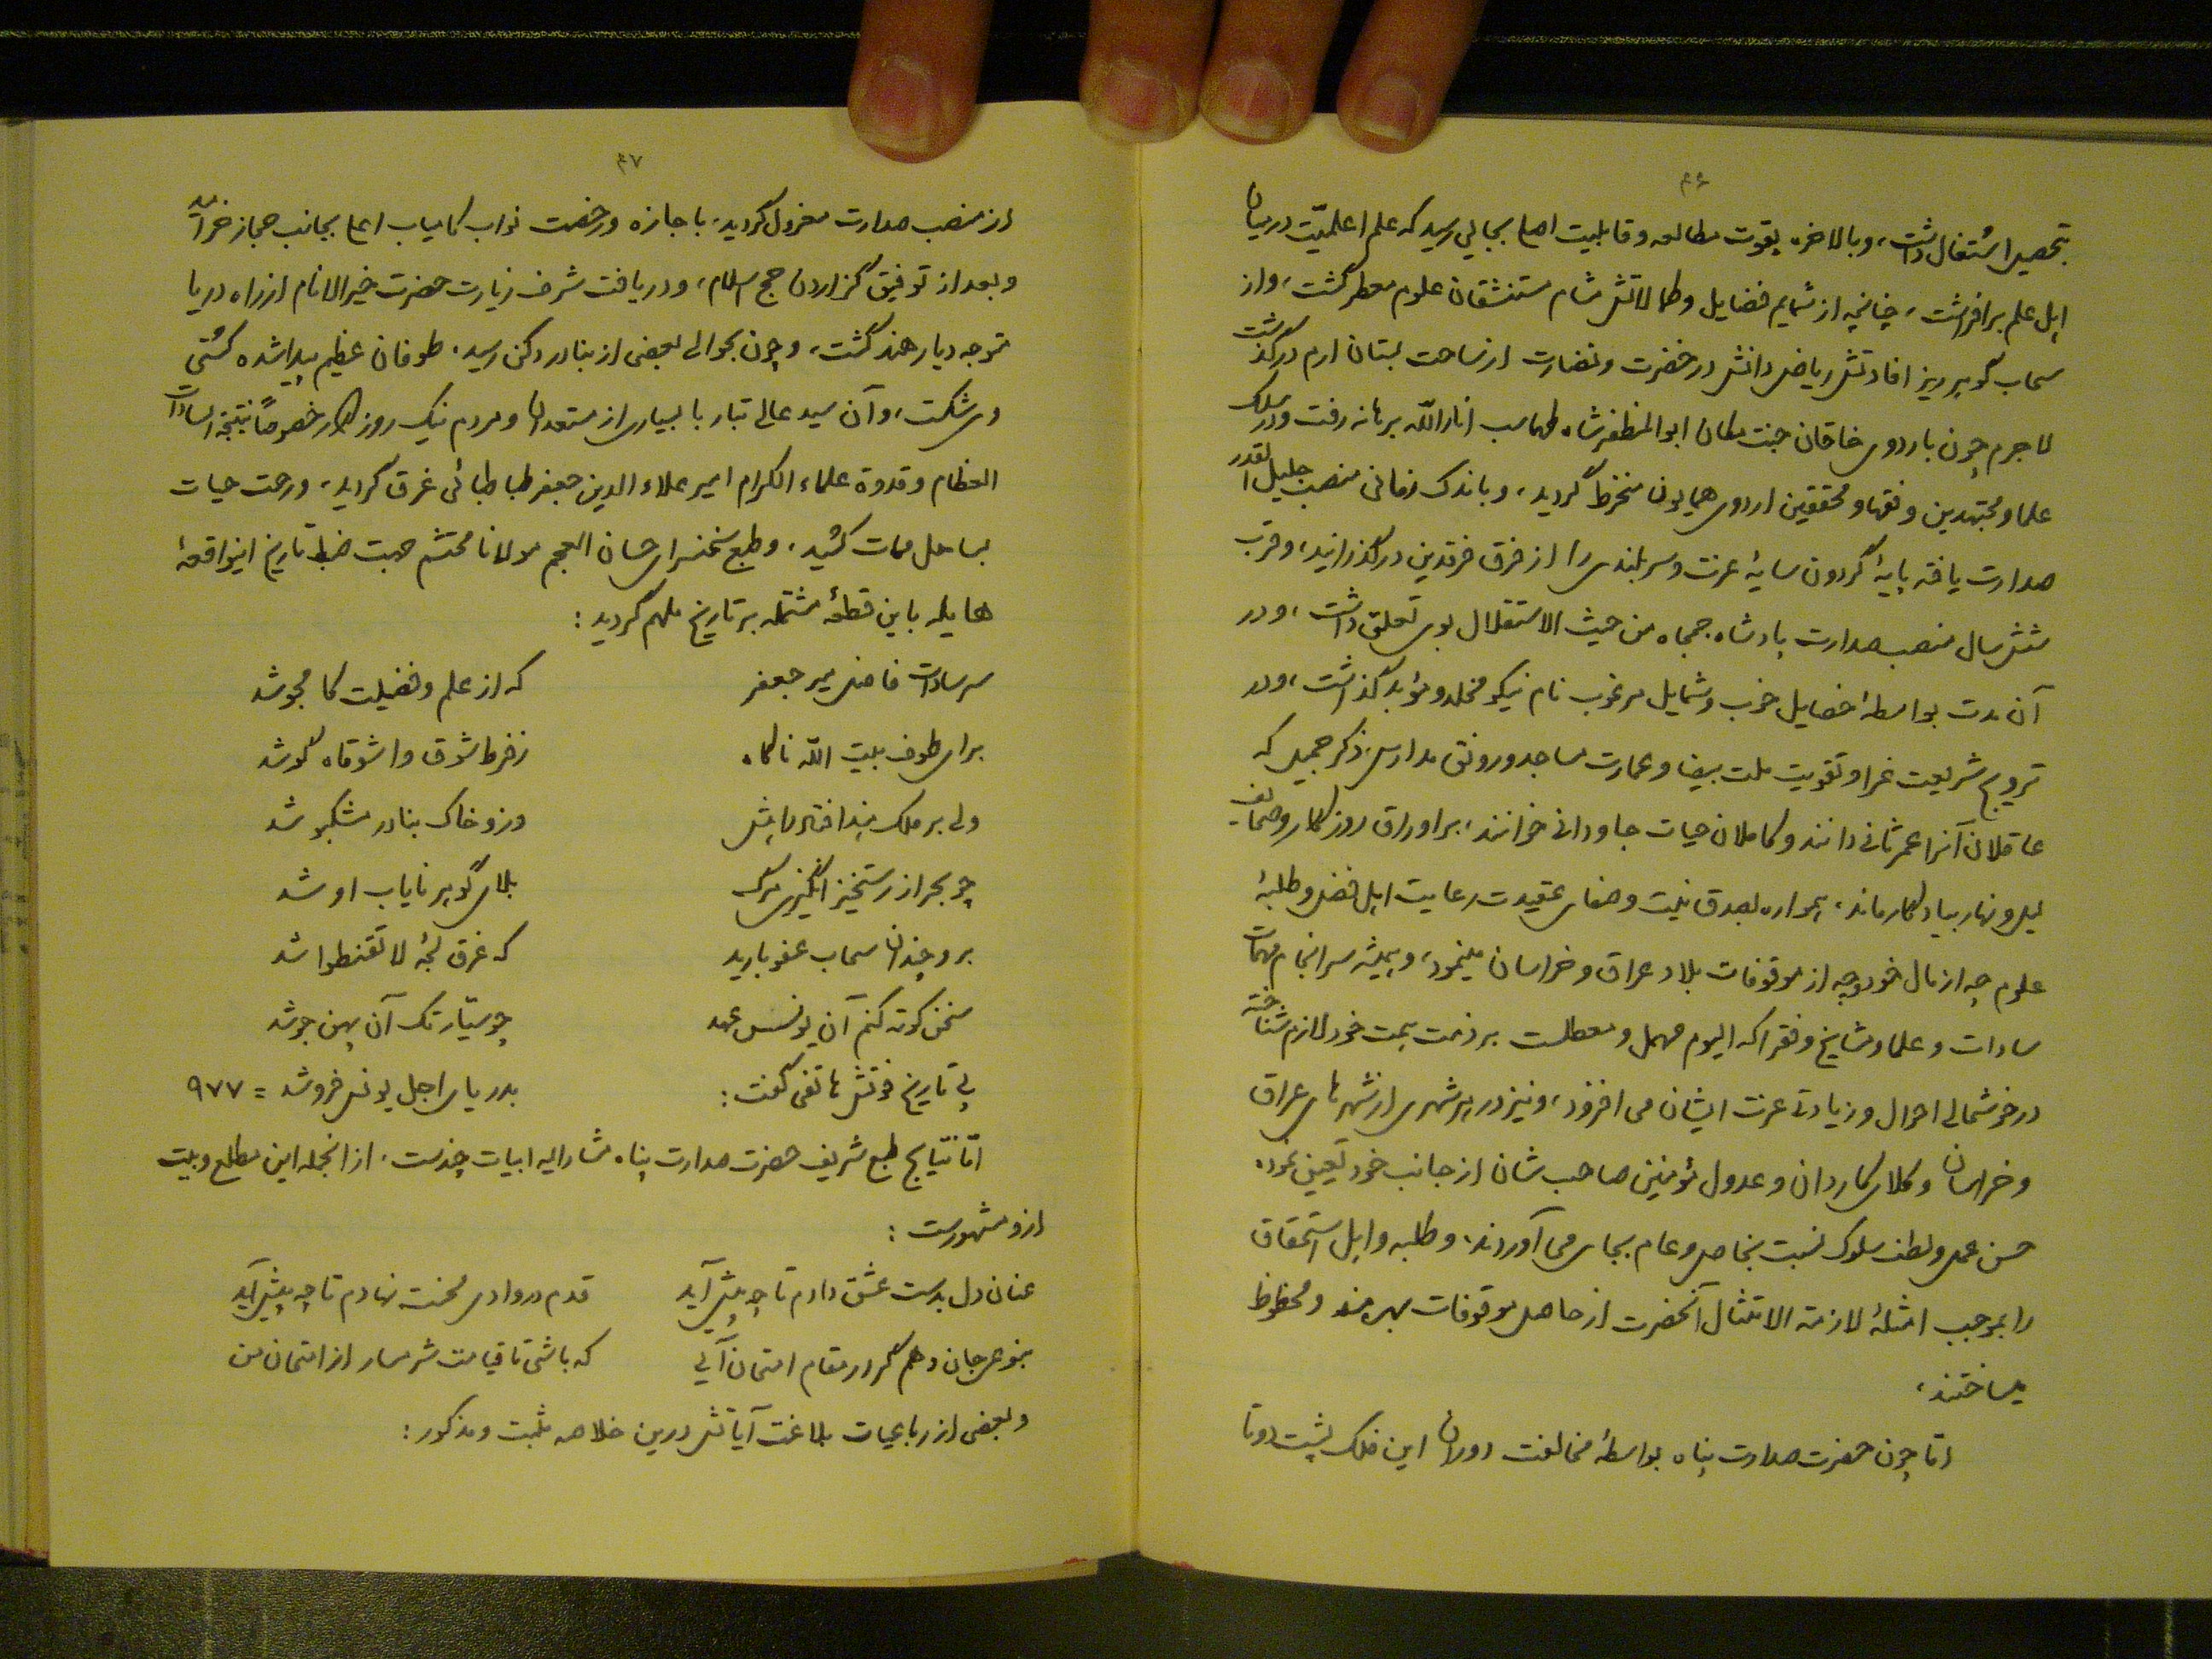 ۴۶
بتحصیل اشتغال داشت، و بالاخره بقوت مطالعه و قابلیت اصلی بجایی رسید که علم اعلمیّت در میان
اهل علم برافراشت، چنانچه از شمایم فضایل و کمالاتش مشام مستنشقان علوم معطر گشت، و از
سحاب گوهر ریز افادتش ریاض دانش در خضرت و نضارت از ساحت بستان ارم درگذشت
لاجرم چون باردوی خاقان جنت مکان ابوالمظفر شاه طهماسب انارالله برهانه رفت و در سلک
علما و مجتهدین و فقها و محققین اردوی همایون منخرط گردید، و باندک زمانی منصب جلیل القدر
صدارت یافته پایهٔ گردون سایهٔ عزت و سربلندی را از فرق فرقدین درگذرانید، و قرب
شش سال منصب صدارت پادشاه جمجاه من حیث الاستقلال بوی تعلق داشت، و در
آن مدت بواسطهٔ خصایل خوب و شمایل مرغوب نام نیکو مخلد و مؤبد گذاشت، و در
ترویج شریعت غرا و تقویت ملت بیضا و عمارت مساجد و رونق مدارس، ذکر جمیل که
عاقلان آنرا عمر ثانی دانند و کاملان حیات جاودانی خوانند، بر اوراق روزگار و صحایف
لیل و نهار بیادگار ماند، همواره بصدق نیت و صفای عقیدت رعایت اهل فضل و طلبهٔ
علوم چه از مال خود و چه از موقوفات بلاد عراق و خراسان مینمود، و همیشه سرانجام مهمات
سادات و علما و مشایخ و فقرا که الیوم مهمل و معطلست بر ذمت همت خود لازم شناخته
در خوشحالی احوال و زیادتی عزت ایشان می افزود، و نیز در هر شهری از شهرهای عراق
و خراسان وکلای کاردان و عدول مؤمنین صاحب شان از جانب خود تعیین نموده
حسن عمل و لطف سلوک نسبت بخاص و عام بجای می آوردند، و طلبه و اهل استحقاق
را بموجب امثلهٔ لازمة الامتثال آنحضرت از حاصل موقوفات بهره مند و محظوظ
میساختند،
امّا چون حضرت صدارت پناه بواسطهٔ مخالفت دوران این فلک پشت دوتا
۴۷
از منصب صدارت معزول گردید، باجازه و رخصت نواب کامیاب اعلی بجانب حجاز خرامید
و بعد از توفیق گزاردن حج اسلام، و دریافت شرف زیارت حضرت خیرالانام از راه دریا
متوجه دیار هند گشت، و چون بحوالی بعضی از بنادر دکن رسید، طوفان عظیم پیدا شده کشتی
وی شکست، و آن سید عالی تبار با بسیاری از مستعدان و مردم نیک روزگار خصوصاً نتیجة السادات
العظام و قدوة علماء الکرام امیر علاء الدین جعفر طباطبائی غرق گردید، و رخت حیات
بساحل ممات کشید، و طبع سخنسرای حسان العجم مولانا محتشم جهت ضبط تاریخ اینواقعهٔ
هایله باین قطعهٔ مشتمله بر تاریخ ملهم گردید:
سر سادات فاضل میر جعفر که از علم و فضیلت کامجو شد
برای طوف بیت الله ناگاه ز فرط شوق و اشوقاه گو شد
ولی بر ملک هند افتاد راهش وزو خاک بنادر مشکبو شد
چو بحر از رستخیز انگیزی مرگ بلای گوهر نایاب او شد
برو چندان سحاب عفو بارید که غرق لجهٔ لا تقنطوا شد
سخن کوته کنم آن یونس عهد چو سیّار تک آن پهن جو شد
پی تاریخ فوتش هاتفی گفت: بدریای اجل یونس فرو شد = ۹۷۷
امّا نتایج طبع شریف حضرت صدارت پناه مشارالیه ابیات چندست، از انجمله این مطلع و بیت
ازو مشهورست:
عنان دل بدست عشق دادم تا چه پیش آید قدم در وادی محنت نهادم تا چه پیش آید
بنوعی جان دهم گر در مقام امتحان آیی که باشی تا قیامت شرمسار از امتحان من
و بعضی از رباعیات بلاغت آیاتش درین خلاصه مثبت و مذکور: